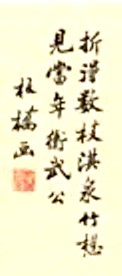 折謹數枝淇泉竹想
見當年衛武公
板橋画